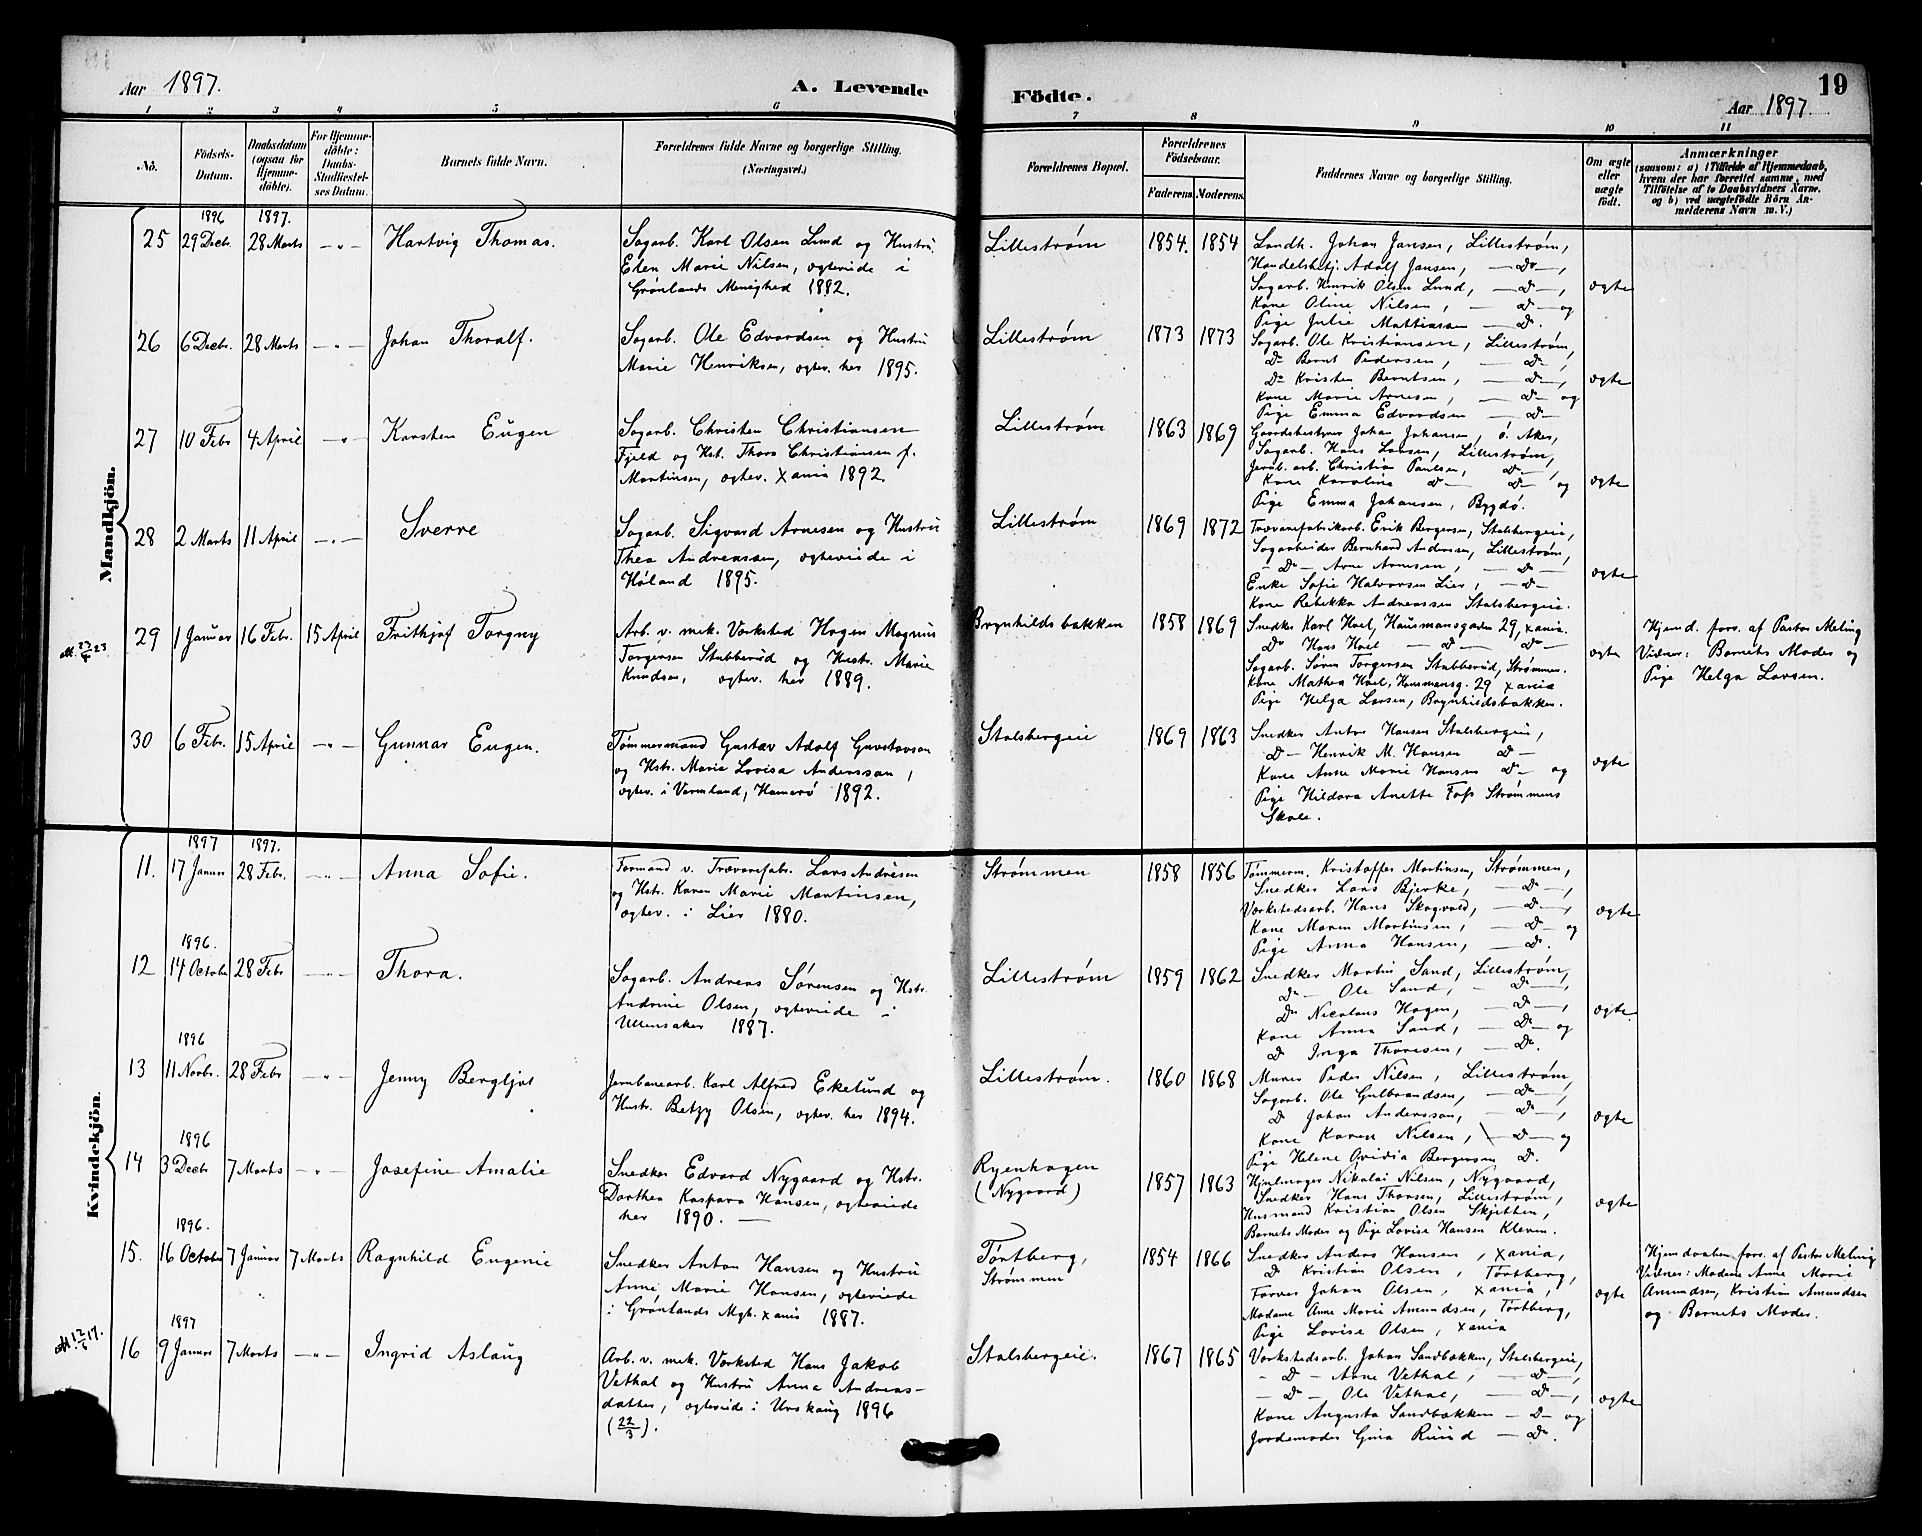 Aar 1897.
A. Levende
Födte.
19
Aar 1897
1 2 3 4 5 6 7 8 9 10 11
Nô.
Födsels-Datum.
Daabsdatum (ogsaa for Hjemmedöbte).
For Hjemmedöbte: Daabs-Stadfæstelses Datum.
Barnets fulde Navn.
Forældrenes fulde Navne og borgerlige Stilling. (Næringsvei.)
Forældrenes Bopæl.
Forældrenes Födselsaar.
Faderens. Moderens.
Faddernes Navne og borgerlige Stilling.
Om ægte eller uægte födt.
Anmærkninger
(saasom: a) i Tilfælde af Hjemmedaab,
hvem der har forrettet samme, med
Tilföielse af to Daabsvidners Navne.
og b) ved uægtefödte Börn An-
melderens Navn m. V.)
Mandkjön.
1896 1897.
25 29 Decbr. 28 Marts — " — Hartvig Thomas.
Sagarb. Karl Olsen Lund og Hustru
Elen Marie Nilsen, ægteviede i
Grønlands Menighed 1882.
Lillestrøm 1854. 1854
Landh. Johan Jansen, Lillestrøm,
Handelsbetj. Adolf Jansen, — Do —,
Sagarb. Henrik Olsen Lund, — D —,
Kone Oline Nilsen, — D — og
Pige Julie Mathiassen — D.
ægte
26 6 Decbr. 28 Marts — " — Johan Thoralf.
Sagarb. Ole Edvardsen og Hustru
Marie Henriksen, ægtev. her 1895.
Lillestrøm 1873 1873
Sagarb. Ole Kristiansen, Lillestrøm,
Do Bernt Pedersen, — D —,
Do Kristen Berntsen, — D —,
Kone Marie Arnesen, — D — og
Pige Emma Edvardsen — D —
ægte
27 10 Febr 4 April — " — Karsten Eugen
Sagarb. Christen Christiansen
Fjeld og Hst. Thora Christiansen f.
Martinsen, ægtev. Xania 1892.
Lillestrøm 1863 1869
Gaardsbestyrer Johan Johansen, Ö. Aker,
Sagarb. Hans Larsen, Lillestrøm,
Jernb. arb. Christian Paulsen, D —,
Kone Karoline D — D — og
Pige Emma Johansen, Bygdø.
ægte
28 2 Marts 11 April — " — Sverre
Sagarb. Sigvard Arnesen og Hustru
Thea Andreassen, ægteviede i
Høland 1895.
Lillestrøm 1869 1872
Trævarefabrikarb. Erik Bergersen, Stalsbergeie,
Sagarbeider Bernhard Andersen, Lillestrøm,
— D — Arne Arnesen, — D —
Enke Sofie Halvorsen Lier, — D —
Kone Rebekka Andreassen Stalsbergeie.
ægte
att. 23/4 23
29 1 Januar 16 Febr. 15 April Frithjof Torgny
Arb. v. mek. Værksted Hagen Magnus
Torgersen Stubberud og Hustr. Marie
Knudsen, ægtev. her 1889.
Brynhildsbakken 1858 1869
Snedker Karl Hoel, Hausmansgaden 29, Xania.
Do Hans Hoel — D — D —
Sagarb. Søren Torgersen Stubberud, Strømmen.
Kone Mathea Hoel, Hausmansg. 29 Xania
Pige Helga Larsen, Brynhildsbakken.
ægte
Hjemd. forr. af Pastor Meling
Vidner: Barnets Moder og
Pige Helga Larsen.
30 6 Febr. 15 April — " — Gunnar Eugen.
Tømmermand Gustav Adolf Gustavson
og Hstr. Maria Lovisa Andersson,
ægtev. i Vermland, Hamerö 1892.
Stalsbergeie 1869 1863
Snedker Anton Hansen Stalsbergeie,
D — Henrik M. Hansen D —
Kone Anne Marie Hansen D — og
Pige Hildora Anette Foss Strømmens
Skole.
ægte
Kvindekjön.
1897 1897.
11. 17 Januar 28 Febr. — " — Anna Sofie.
Formand v. Trævarefabr. Lars Andresen
og Hstr. Karen Marie Martinsen,
ægtev. i Lier 1880.
Strømmen 1858 1856
Tømmerm. Kristoffer Martinsen, Strømmen,
Snedker Lars Bjerke, — D —,
Værkstedsarb. Hans Skogvold, — D —,
Kone Maren Martinsen, — D — og
Pige Anna Hansen, — D.
ægte
1896.
12 14 October 28 Febr — " — Thora.
Sagarb. Andreas Sørensen og Hstr.
Andrine Olsen, ægteviede i
Ullensaker 1887.
Lillestrøm 1859 1862
Snedker Martin Sand, Lillestrøm,
Do — Ole Sand, — D —,
Do Nicolaus Hagen, — D —,
Kone Anna Sand, — D — og
D Inga Thoresen, — D.
ægte.
1896
13 11 Novbr. 28 Febr — " — Jenny Bergljot
Jernbanearb. Karl Alfred Ekelund og
Hustr. Betzy Olsen, ægtev. her 1894.
Lillestrøm. 1860 1868
Murer Peder Nilsen, Lillestrøm,
Sagarb. Ole Gulbrandsen, — D —,
D Johan Andersson, — D —,
Kone Karen Nilsen, — D — og
Pige Helene Ovidia Bergersen D.
ægte
1896
14 3 Decbr 7 Marts — " — Josefine Amalie
Snedker Edvard Nygaard og Hstr.
Dorthea Kaspara Hansen, ægteviede
her 1890. —
Ryenhagen
(Nygaard)
1857 1863
Hjulmager Nikolai Nilsen, Nygaard,
Snedker Hans Thorsen, Lillestrøm,
Husmand Kristian Olsen Skjetten,
Barnets Moder og Pige Lovise Hansen Kleven.
ægte
1896.
15. 16 October 7 Januar 7 Marts Ragnhild Eugenie
Snedker Anton Hansen og Hustru
Anne Marie Hansen, ægteviede
i Grønlands Mgh. Xania 1887.
Tørtberg,
Strømmen
1854 1866
Snedker Anders Hansen, Xania,
D Kristian Olsen, Tørtberg,
Farver Johan Olsen, Xania,
Madame Anne Marie Amundsen, Tørtberg,
Pige Lovise Olsen, Xania
ægte
Hjemdaaben forr. af Pastor Meling
Vidner: Madame Anne Marie
Amundsen, Kristian Amundsen
og Barnets Moder.
1897
16 9 Januar 7 Marts — " — Ingrid Aslaug
Arb. v. mek. Værksted Hans Jakob
Vethal og Hustru Anna Andreas-
datter, ægteviede i Urskaug 1896
(22/3).
Stalsbergeie. 1867 1865
Værkstedsarb. Johan Sandbækken, Stalsbergeie,
— D — Arne Vethal, — D —,
— D — Ole Vethal, — D —,
Kone Augusta Sandbækken — D — og
Jordemoder Gina Ruud — D.
ægte